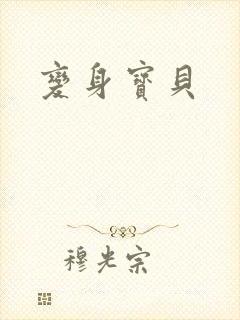 變身寶貝
穆光宗